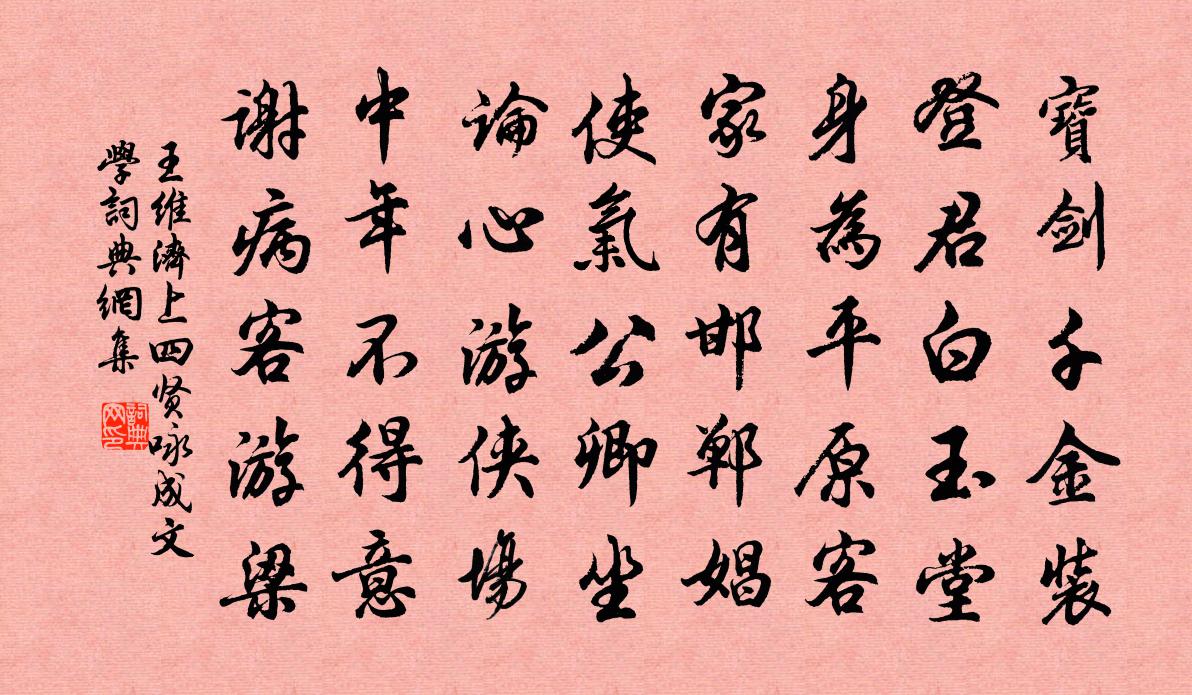 寶劍千金裝
登君白玉堂
身為平原客
家有邯鄲娼
使氣公卿坐
論心游俠場
中年不得意
謝病客游梁
王維濟上四贤咏成文
學詞典網集
詞典网印